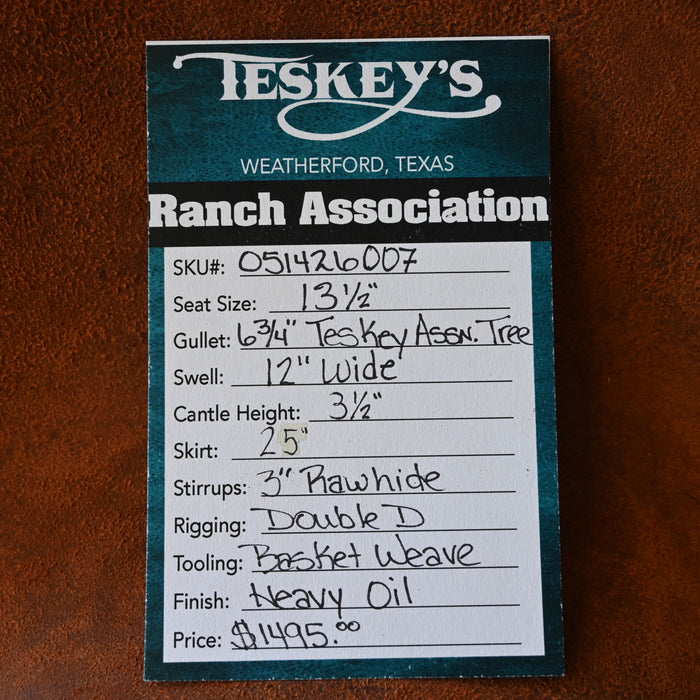 TESKEY'S
WEATHERFORD, TEXAS
Ranch Association
SKU#: 051426007
Seat Size: 13 1/2"
Gullet: 6 3/4" Teskey Assn. Tree
Swell: 12" Wide
Cantle Height: 3 1/2"
Skirt: 25"
Stirrups: 3" Rawhide
Rigging: Double D
Tooling: Basket Weave
Finish: Heavy Oil
Price: $1495.00